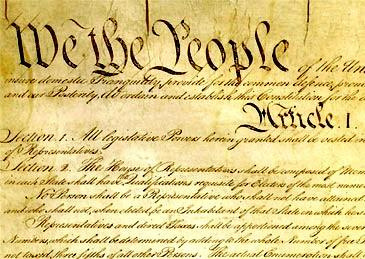 We the People of the Uni
insure domestic Tranquility, provide for the common defence, prom
and our Posterity, do ordain and establish this Constitution for the
Article I.
Section 1. All legislative Powers herein granted shall be vested in
of Representatives.
Section 2. The House of Representatives shall be composed of Mem
in each State shall have the Qualifications requisite for Electors of the most nume
No Person shall be a Representative who shall not have attained
and who shall not, when elected, be an Inhabitant of that State in which he s
Representatives and direct Taxes shall be apportioned among the seve
Numbers, which shall be determined by adding to the whole Number of free P
not taxed, three fifths of all other Persons. The actual Enumeration shall